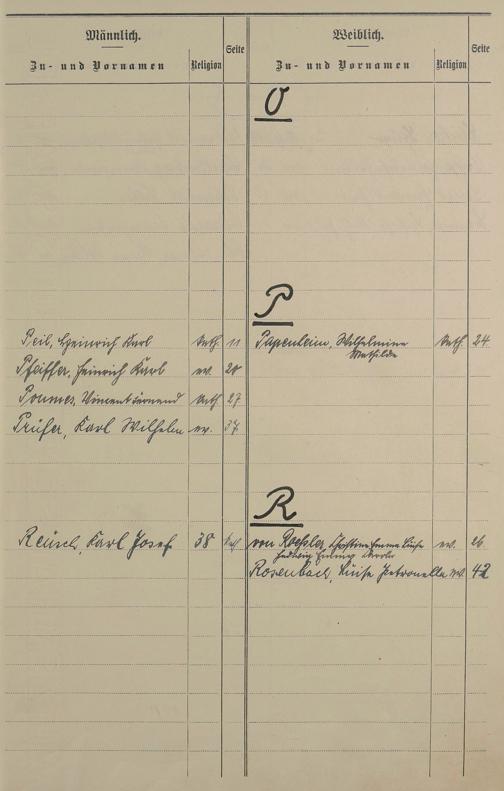 Männlich.
Zu- und Vornamen
Religion
Seite
Weiblich.
Zu- und Vornamen
Religion
Seite
O
P
Peil, Heinrich Karl kath 11
Papenheim, Wilhelmine kath. 24
Mathilde
Pfeiffer, Heinrich Karl ev. 20
Poumes, kath 27
Prüfer, Karl Wilhelm ev. 37
R
Reusch, Karl Josef 38 kath.
von Roeßler, Emma Luise ev. 26
Hedwig
Rosenbach, Luise Petronella ev. 42